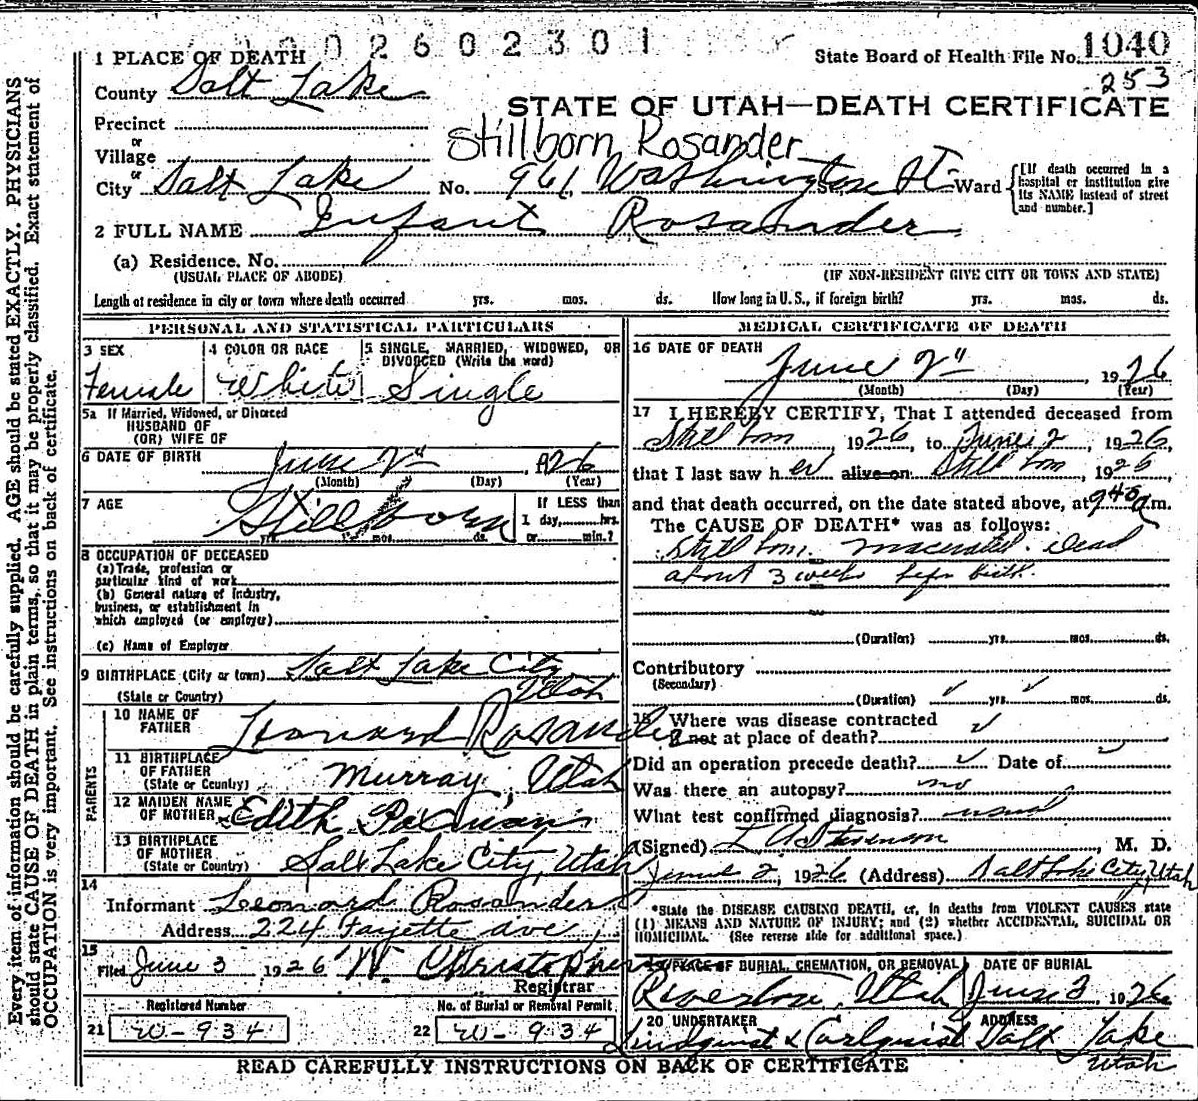 002602301
1 PLACE OF DEATH
State Board of Health File No. 1040
253
County Salt Lake
STATE OF UTAH—DEATH CERTIFICATE
Precinct
or
Stillborn Rosander
Village
or
City Salt Lake No. 961 Washington St. Ward
[If death occurred in a hospital or institution give its NAME instead of street and number.]
2 FULL NAME Infant Rosander
(a) Residence. No.
(USUAL PLACE OF ABODE) (IF NON-RESIDENT GIVE CITY OR TOWN AND STATE)
Length of residence in city or town where death occurred yrs. mos. ds. How long in U.S., if foreign birth? yrs. mos. ds.
PERSONAL AND STATISTICAL PARTICULARS
3 SEX
Female
4 COLOR OR RACE
White
5 SINGLE, MARRIED, WIDOWED, OR
DIVORCED (Write the word)
Single
5a If Married, Widowed, or Divorced
HUSBAND OF
(OR) WIFE OF
6 DATE OF BIRTH June 2nd, 1926
(Month) (Day) (Year)
7 AGE
Stillborn
yrs. mos. ds.
If LESS than
1 day, hrs.
or min.?
8 OCCUPATION OF DECEASED
(a) Trade, profession or
particular kind of work
(b) General nature of industry,
business, or establishment in
which employed (or employer)
(c) Name of Employer
9 BIRTHPLACE (City or town) Salt Lake City
(State or Country) Utah
PARENTS
10 NAME OF
FATHER Leonard Rosander
11 BIRTHPLACE
OF FATHER
(State or Country) Murray, Utah
12 MAIDEN NAME
OF MOTHER Edith Paxman
13 BIRTHPLACE
OF MOTHER
(State or Country) Salt Lake City, Utah
14
Informant Leonard Rosander
Address 224 Fayette Ave
15
Filed June 3 1926 W. Christopher
Registrar
Registered Number
21 W-934
No. of Burial or Removal Permit
22 W-934
MEDICAL CERTIFICATE OF DEATH
16 DATE OF DEATH
June 2nd, 1926
(Month) (Day) (Year)
17 I HEREBY CERTIFY, That I attended deceased from
Still born 1926, to June 2, 1926,
that I last saw her alive on Still born, 1926,
and that death occurred, on the date stated above, at 9 40 a.m.
The CAUSE OF DEATH* was as follows:
Still born. macerated. Dead
about 3 weeks before birth.
(Duration) yrs. mos. ds.
Contributory
(Secondary)
(Duration) yrs. mos. ds.
18 Where was disease contracted
if not at place of death?
Did an operation precede death? Date of
Was there an autopsy? no
What test confirmed diagnosis? usual
(Signed) L A Stevenson, M. D.
June 2, 1926 (Address) Salt Lake City, Utah
*State the DISEASE CAUSING DEATH, or, in deaths from VIOLENT CAUSES state
(1) MEANS AND NATURE OF INJURY; and (2) whether ACCIDENTAL, SUICIDAL OR
HOMICIDAL. (See reverse side for additional space.)
19 PLACE OF BURIAL, CREMATION, OR REMOVAL
Riverton, Utah
DATE OF BURIAL
June 3 1926
20 UNDERTAKER
Lindquist & Carlquist
ADDRESS
Salt Lake
Utah
READ CAREFULLY INSTRUCTIONS ON BACK OF CERTIFICATE
Every item of information should be carefully supplied. AGE should be stated EXACTLY. PHYSICIANS
should state CAUSE OF DEATH in plain terms, so that it may be properly classified. Exact statement of
OCCUPATION is very important. See instructions on back of certificate.